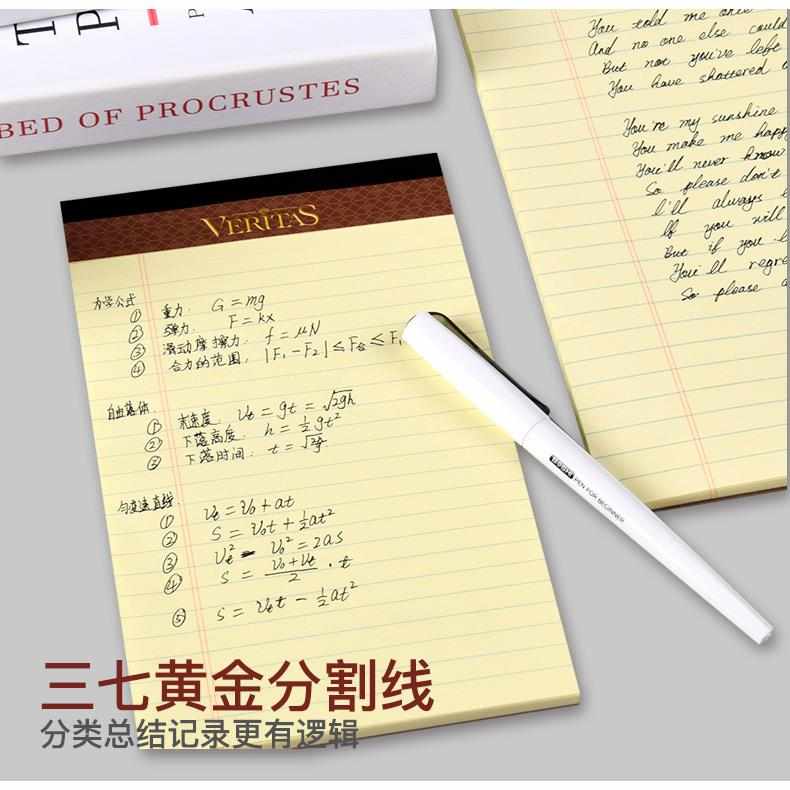 BED OF PROCRUSTES
VERITAS
力学公式
① 重力: G = mg
② 弹力: F = kx
③ 滑动摩擦力: f = μN
④ 合力的范围: |F₁ - F₂| ≤ F合 ≤ F₁
自由落体
① 末速度: Vt = gt = √2gh
② 下落高度: h = ½gt²
③ 下落时间: t =
匀变速直线
① Vt = V₀ + at
② S = V₀t + ½at²
③ Vt² - V₀² = 2as
④ S = (V₀ + Vt)/2 · t
⑤ S = Vt t - ½at²
You told me once
And no one else could
But not you've left
You have shattered
You're my sunshine
You make me happy
You'll never know
So please don't
I'll always
If you will
But if you
You'll regre
So please
PEN FOR BEGINNER
三七黄金分割线
分类总结记录更有逻辑